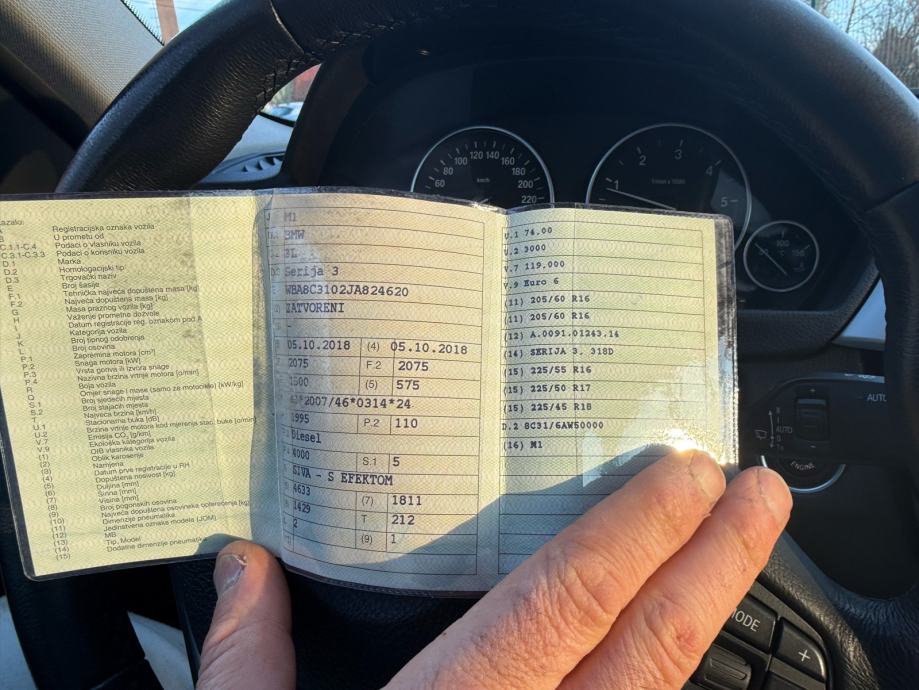 Registracijska oznaka vozila
U prometu od
C.1.1-C.4 Podaci o vlasniku vozila
C.3.1-C.3.3 Podaci o korisniku vozila
D.1 Marka
D.2 Homologacijski tip
D.3 Trgovački naziv
E Broj šasije
F.1 Tehnička najveća dopuštena masa [kg]
F.2 Najveća dopuštena masa [kg]
G Masa praznog vozila [kg]
H Važenje prometne dozvole
I Datum registracije reg. oznakom pod A
J Kategorija vozila
K Broj tipnog odobrenja
L Broj osovina
P.1 Zapremina motora [cm³]
P.2 Snaga motora [kW]
P.3 Vrsta goriva ili izvora snage
P.4 Nazivna brzina vrtnje motora [o/min]
R Boja vozila
Q Omjer snage i mase (samo za motocikle) [kW/kg]
S.1 Broj sjedećih mjesta
S.2 Broj stajaćih mjesta
T Najveća brzina [km/h]
U.1 Stacionarna buka [dB]
U.2 Brzina vrtnje motora kod mjerenja stac. buke [o/min]
V.7 Emisija CO₂ [g/km]
V.9 Ekološka kategorija vozila
(1) OIB vlasnika vozila
(2) Oblik karoserije
(3) Namjena
(4) Datum prve registracije u RH
(5) Dopuštena nosivost [kg]
(6) Duljina [mm]
(7) Širina [mm]
(8) Visina [mm]
(9) Broj pogonskih osovina
(10) Najveća dopuštena osovinska opterećenja [kg]
(11) Dimenzije pneumatika
(12) Jedinstvena oznake modela (JOM)
(13) MB
(14) Tip, Model
(15) Dodatne dimenzije pneumatika
M1
BMW
3L
Serija 3
WBA8C3102JA824620
ZATVORENI
-
05.10.2018 (4) 05.10.2018
2075 F.2 2075
1500 (5) 575
*2007/46*0314*24
1995 P.2 110
Diesel
4000 S.1 5
SIVA - S EFEKTOM
4633 (7) 1811
1429 T 212
2 (9) 1
U.1 74.00
U.2 3000
V.7 119.000
V.9 Euro 6
(11) 205/60 R16
(11) 205/60 R16
(12) A.0091.01243.14
(14) SERIJA 3. 318D
(15) 225/55 R16
(15) 225/50 R17
(15) 225/45 R18
D.2 8C31/6AW50000
(16) M1
60 80 100 120 140 160 180 200 220
km/h
1 2 3 4 5
1/min x 1000
AUTO
AUTO
ENGINE
MODE
+